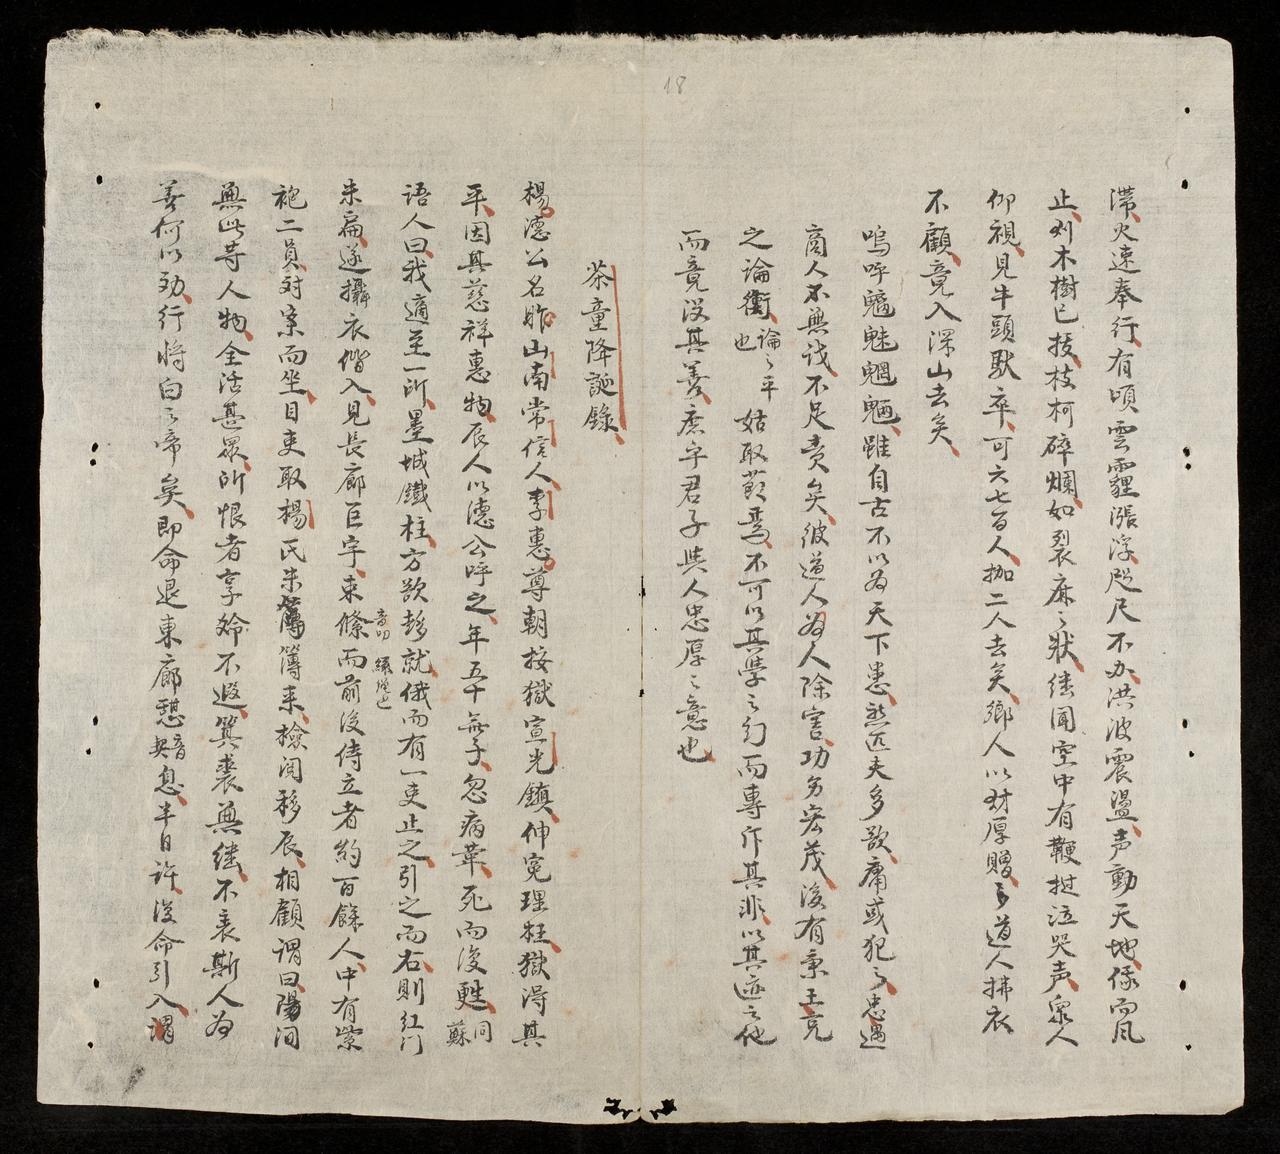 18
滯火速奉行有頃雲霾漲浮咫尺不办洪波震盪声動天地俄而风
止刘木樹已拔枝柯碎爛如裂麻之狀継闻空中有鞭挝泣哭声众人
仰視見牛頭獸卒可六七百人枷二人去矣鄉人以財厚贈之道人拂衣
不顧竟入深山去矣
嗚呼魑魅魍魎雖自古不以為天下患然匹夫多欲痛或犯之忠遇
商人不無訧不足責矣彼道人為人除害功另宏茂後有秉王充
之論衡論之平也姑取節焉不可以其學之幻而專斥其非以其迹之他
而竟没其善庶乎君子與人忠厚之意也
茶童降誕錄
楊德公名昨山南常信人李惠尊朝按獄宣光鎮伸冤理枉獄得其
平因其慈祥惠物辰人以德公呼之年五十無子忽病革死而復甦同蘇
语人曰我適至一所墨城鐵柱方欲移就俄而有一吏止之引之而右則红门
朱扁遂攝衣偕入見長廊巨宇束絛音叨縧絕也而前後侍立者約百餘人中有紫
袍二員対案而坐目吏取楊氏朱簿簿来檢閱移辰相顧谓曰陽间
無此等人物全活甚眾所恨者享龄不遐箕裘無継不表斯人为
善何以劝行将白之帝矣即命退東廊憩音契息半日許復命引入谓